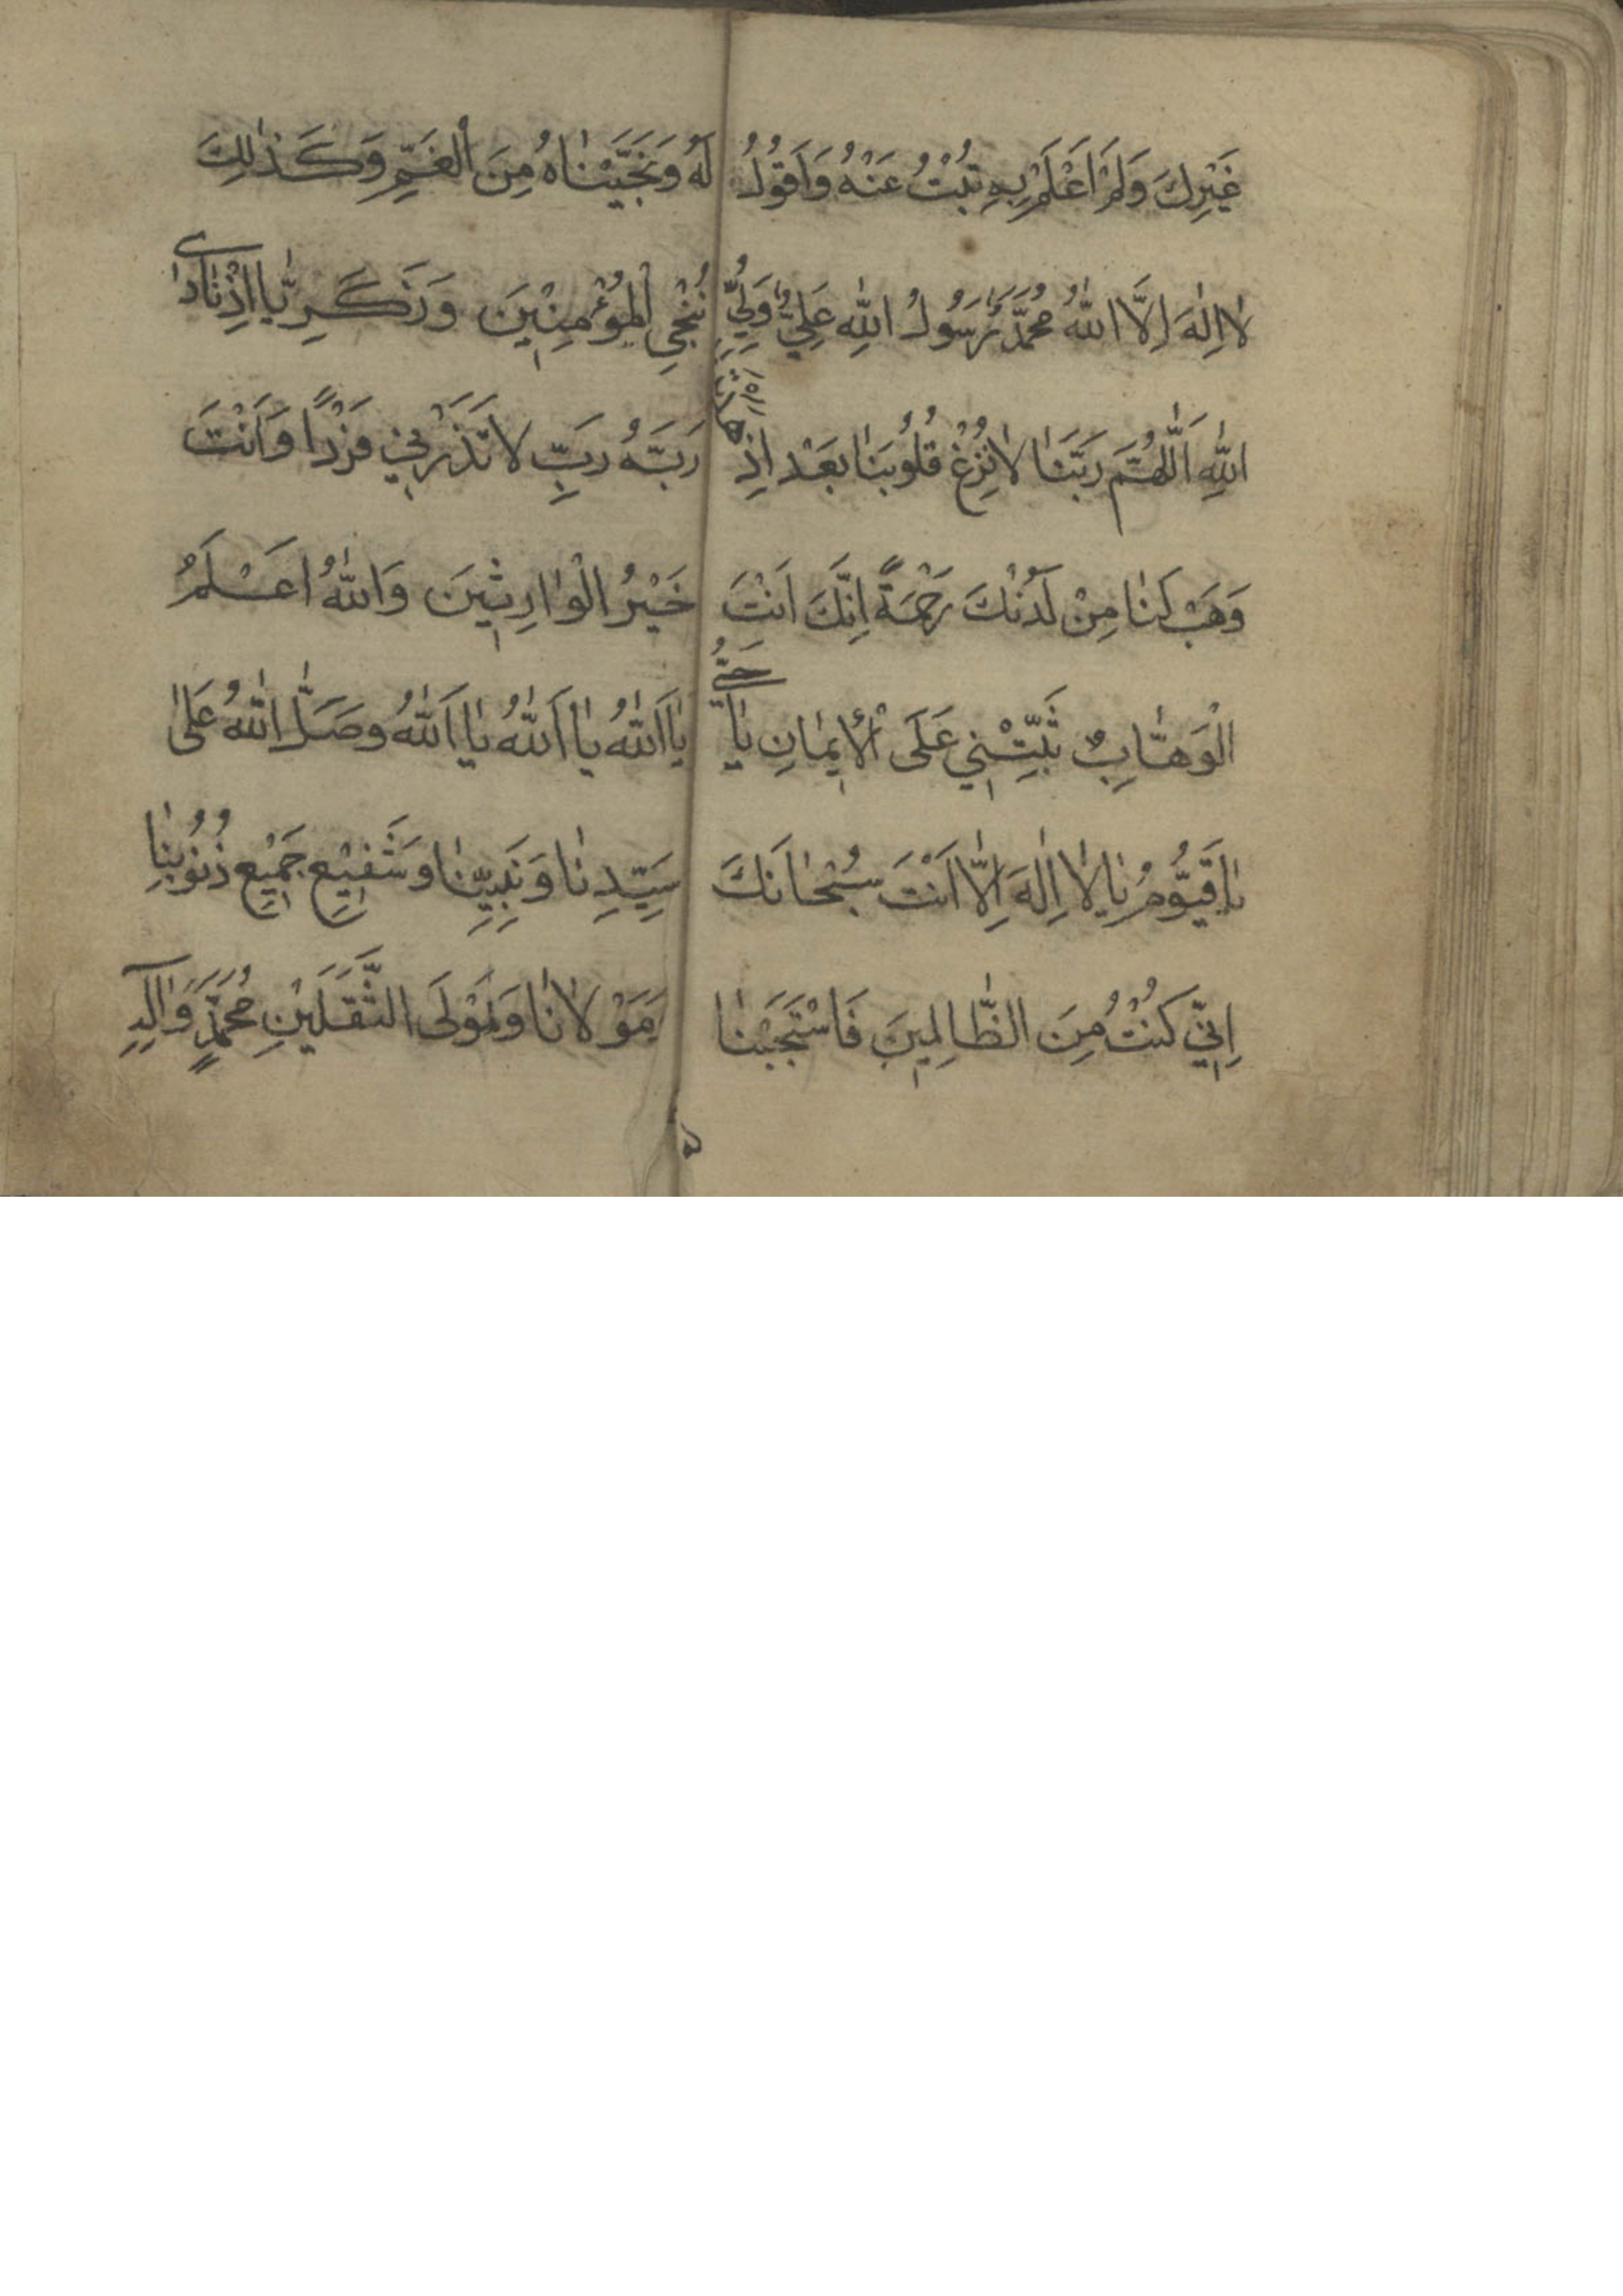 غَيْرِكَ وَلَمْ اَعْلَمْ بِهِ تُبْتُ عَنْهُ وَاَقُولُ
لٰا اِلٰهَ اِلَّا اللّٰهُ مُحَمَّدٌ رَسُولُ اللّٰهِ عَلِيٌّ وَلِيُّ
اللّٰهِ اَللّٰهُمَّ رَبَّنَا لٰا تُزِغْ قُلُوبَنٰا بَعْدَ اِذْ
هَدَيْتَنَا
وَهَبْ لَنٰا مِنْ لَدُنْكَ رَحْمَةً اِنَّكَ اَنْتَ
الْوَهّٰابُ ثَبِّتْنِي عَلَى الْاِيمٰانِ يٰا حَيُّ
يٰا قَيُّومُ يٰا لٰا اِلٰهَ اِلّٰا اَنْتَ سُبْحٰانَكَ
اِنِّي كُنْتُ مِنَ الظّٰالِمِينَ فَاسْتَجَبْنٰا
لَهُ وَنَجَّيْنٰاهُ مِنَ الْغَمِّ وَكَذٰلِكَ
نُنْجِي الْمُؤْمِنِيْنَ وَزَكَرِيّٰا اِذْ نٰادٰى
رَبَّهُ رَبِّ لٰا تَذَرْنِي فَرْدًا وَاَنْتَ
خَيْرُ الْوٰارِثِينَ وَاللّٰهُ اَعْلَمُ
يٰا اَللّٰهُ يٰا اَللّٰهُ يٰا اَللّٰهُ وصَلَّ اللّٰهُ عَلٰى
سَيِّدِنٰا وَنَبِيِّنٰا وَشَفِيْعِ جَمِيْعِ ذُنُوبِنٰا
مَوْلٰانٰا وَمَوْلَى الثَّقَلَيْنِ مُحَمَّدٍ وَاٰلِهِ